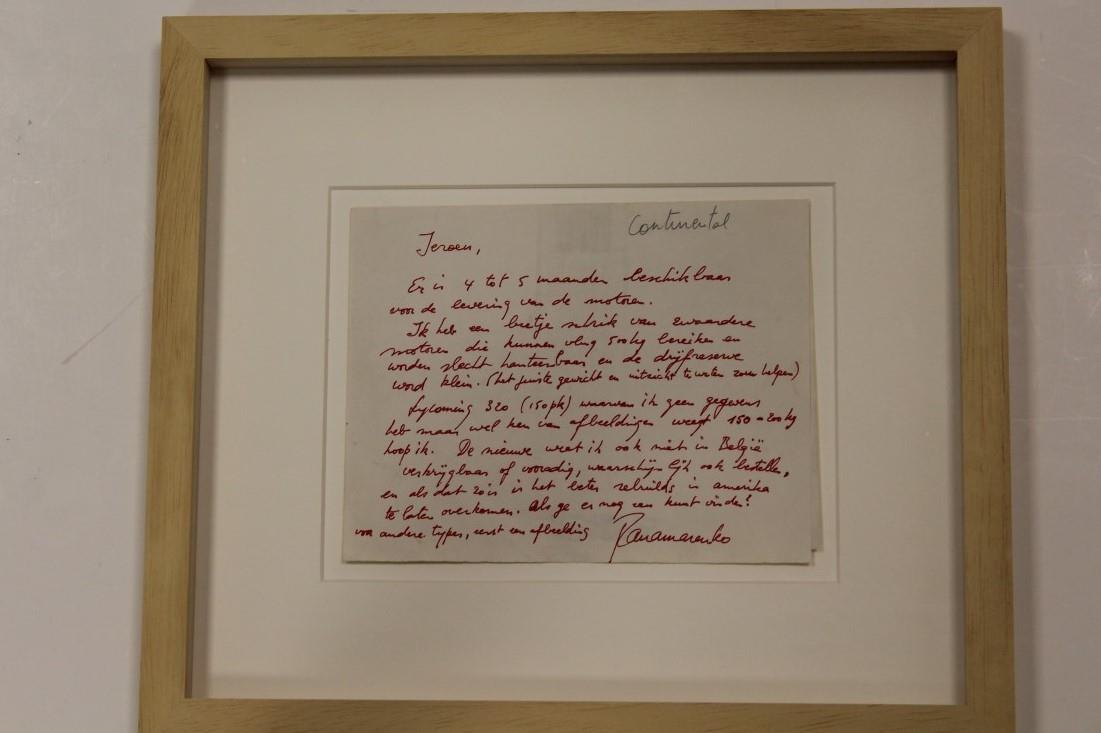 Continental
Jeroen,
Er is 4 tot 5 maanden beschikbaar
voor de levering van de motoren.
Ik heb een beetje schrik van zwaardere
motoren die kunnen vlug 500kg bereiken en
worden slecht hanteerbaar en de drijfreserve
word klein. (het juiste gewicht en uitzicht te weten zou helpen)
Lycoming 320 (150pk) waarvan ik geen gegevens
heb maar wel ken van afbeeldingen weegt 150-200kg
hoop ik. De nieuwe weet ik ook niet in België
verkrijgbaar of voorradig, waarschijnlijk ook bestellen,
en als dat zo is is het beter rebuilds in amerika
te laten overkomen. Als ge er nog een kunt vinden!
voor andere types, eerst een afbeelding Panamarenko